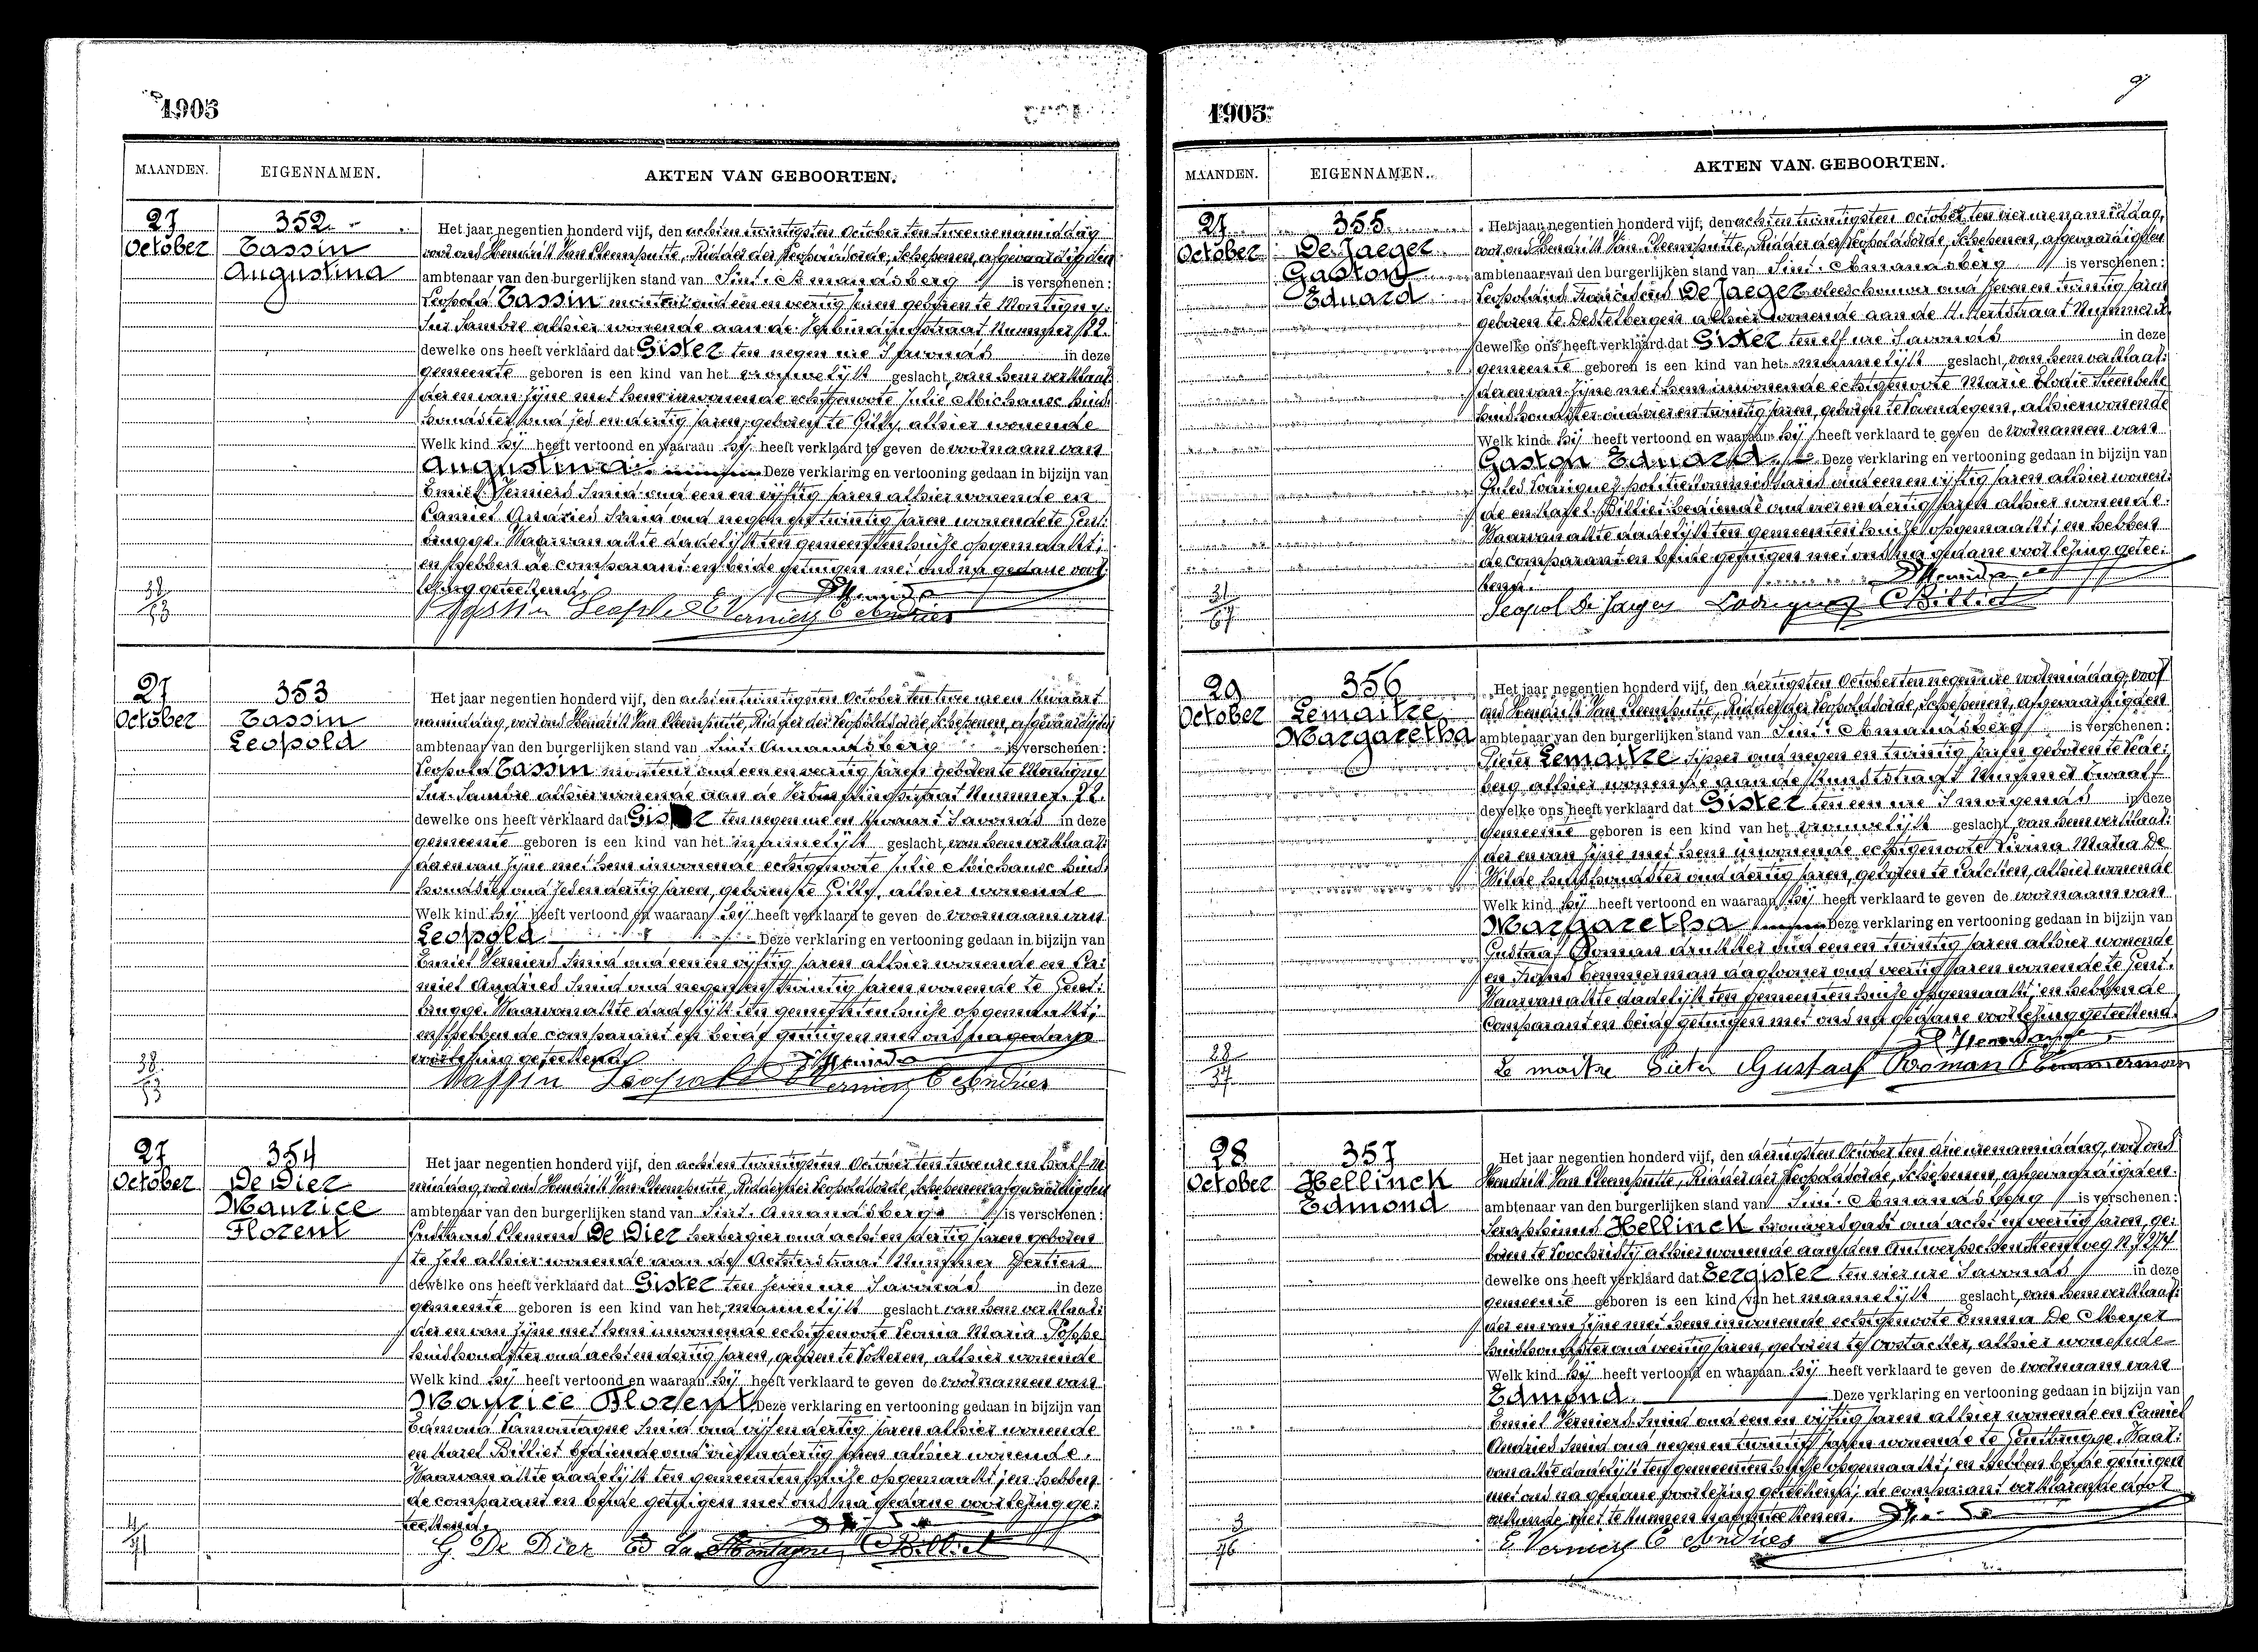 1905
MAANDEN. EIGENNAMEN. AKTEN VAN GEBOORTEN.
27 October
352
Tassin
Augustina
Het jaar negentien honderd vijf, den achten twintigsten October ten twee ure namiddag
voor ons Hendrik Van Cleemputte, Ridder der Leopoldsorde, Schepenen, afgevaardigden
ambtenaar van den burgerlijken stand van Sint-Amandsberg is verschenen:
Leopold Tassin monteur oud een en veertig jaren geboren te Montigny-
Sur Sambre alhier wonende aan de Verbindingstraat Nummer 22.
dewelke ons heeft verklaard dat Gister ten negen ure 's avonds in deze
gemeente geboren is een kind van het vrouwelijk geslacht, van hem verklaar-
der en van zijne met hem inwonende echtgenoote Julie Michaux huis-
houdster oud zes en dertig jaren, geboren te Gilly, alhier wonende
Welk kind hij heeft vertoond en waaraan hij heeft verklaard te geven de voornaam van
Augustina. Deze verklaring en vertooning gedaan in bijzijn van
Emiel Verniers Smid oud een en vijftig jaren alhier wonende en
Camiel Andries Smid oud negen en twintig jaren wonende te Gent-
brugge. Waarvan akte dadelijk ten gemeentenhuize opgemaakt;
en hebben de comparant en beide getuigen met ons na gedane voor-
lezing geteekend.
38
53
Tassin Leopold E Verniers C Andries
27 October
353
Tassin
Leopold
Het jaar negentien honderd vijf, den achten twintigsten October ten twee ure en kwaart
namiddag, voor ons Hendrik Van Cleemputte, Ridder der Leopoldsorde, Schepenen, afgevaardigden
ambtenaar van den burgerlijken stand van Sint-Amandsberg is verschenen:
Leopold Tassin monteur oud een en veertig jaren geboren te Montigny
Sur Sambre alhier wonende aan de Verbindingstraat Nummer 22.
dewelke ons heeft verklaard dat Gister ten negen ure en kwaart 's avonds in deze
gemeente geboren is een kind van het mannelijk geslacht, van hem verklaar-
der en van zijne met hem inwonende echtgenoote Julie Michaux huis-
houdster oud zes en dertig jaren, geboren te Gilly, alhier wonende
Welk kind hij heeft vertoond en waaraan hij heeft verklaard te geven de voornaam van
Leopold Deze verklaring en vertooning gedaan in bijzijn van
Emiel Verniers Smid oud een en vijftig jaren alhier wonende en Ca-
miel Andries Smid oud negen en twintig jaren wonende te Gent-
brugge. Waarvan akte dadelijk ten gemeentenhuize opgemaakt;
en hebben de comparant en beide getuigen met ons na gedane
voorlezing geteekend.
38
53
Tassin Leopold E Verniers C Andries
27 October
354
De Dier
Maurice
Florent
Het jaar negentien honderd vijf, den achten twintigsten October ten twee ure en half na-
middag, voor ons Hendrik Van Cleemputte, Ridder der Leopoldsorde, Schepenen afgevaardigden
ambtenaar van den burgerlijken stand van Sint-Amandsberg is verschenen:
Gustavus Clemens De Dier herbergier oud acht en dertig jaren geboren
te Zele alhier wonende aan de Achterstraat Nummer Dertien
dewelke ons heeft verklaard dat Gister ten zeven ure 's avonds in deze
gemeente geboren is een kind van het mannelijk geslacht van hem verklaar-
der en van zijne met hem inwonende echtgenoote Leonia Maria Poppe
huishoudster oud acht en dertig jaren, geboren te Lokeren, alhier wonende
Welk kind hij heeft vertoond en waaraan hij heeft verklaard te geven de voornamen van
Maurice Florent Deze verklaring en vertooning gedaan in bijzijn van
Edmond Lamontagne Smid oud vijf en dertig jaren alhier wonende
en Karel Billiet bediende oud vier en dertig jaren alhier wonende.
Waarvan akte dadelijk ten gemeentenhuize opgemaakt; en hebben
de comparant en beide getuigen met ons na gedane voorlezing ge-
teekend.
4
41
G. De Dier Ed La Montagne C Billiet
1905
MAANDEN. EIGENNAMEN. AKTEN VAN GEBOORTEN.
27 October
355
De Jaeger
Gaston
Eduard
Het jaar negentien honderd vijf, den achten twintigsten October ten vier ure namiddag,
voor ons Hendrik Van Cleemputte, Ridder der Leopoldsorde, Schepenen, afgevaardigden
ambtenaar van den burgerlijken stand van Sint-Amandsberg is verschenen:
Leopoldus Franciscus De Jaeger vleeschouwer oud zeven en twintig jaren
geboren te Destelbergen alhier wonende aan de H. Hertstraat Nummer
dewelke ons heeft verklaard dat Gister ten elf ure 's avonds in deze
gemeente geboren is een kind van het mannelijk geslacht, van hem verklaar-
der en van zijne met hem inwonende echtgenoote Marie Elodie Steenbeke
huishoudster oud vier en twintig jaren, geboren te Lovendegem, alhier wonende
Welk kind hij heeft vertoond en waaraan hij heeft verklaard te geven de voornamen van
Gaston Eduard. Deze verklaring en vertooning gedaan in bijzijn van
Jules Lodriguez politiecommissaris oud een en vijftig jaren alhier wonen-
de en Karel Billiet bediende oud vier en dertig jaren alhier wonende.
Waarvan akte dadelijk ten gemeentenhuize opgemaakt; en hebben
de comparant en beide getuigen met ons na gedane voorlezing getee-
kend.
31
67
Leopol De Jaeger Lodriguez C Billiet
29 October
356
Lemaitre
Margaretha
Het jaar negentien honderd vijf, den dertigsten October ten negen ure voormiddag, voor
ons Hendrik Van Cleemputte, Ridder der Leopoldsorde, Schepenen, afgevaardigden
ambtenaar van den burgerlijken stand van Sint-Amandsberg is verschenen:
Pieter Lemaitre oud negen en twintig jaren geboren te Lede-
berg alhier wonende aan de Kunststraat Nummer Twaalf
dewelke ons heeft verklaard dat Gister ten een ure 's morgends in deze
gemeente geboren is een kind van het vrouwelijk geslacht, van hem verklaar-
der en van zijne met hem inwonende echtgenoote Livina Maria De
Wilde huishoudster oud dertig jaren, geboren te Calcken, alhier wonende
Welk kind hij heeft vertoond en waaraan hij heeft verklaard te geven de voornaam van
Margaretha Deze verklaring en vertooning gedaan in bijzijn van
Gustaaf Roman drukker oud een en twintig jaren alhier wonende
en Frans Temmerman dagloner oud veertig jaren wonende te Gent.
Waarvan akte dadelijk ten gemeentenhuize opgemaakt; en hebben de
comparant en beide getuigen met ons na gedane voorlezing geteekend.
28
37
Le maitre Pieter Gustaaf Roman F Temmerman
28 October
357
Hellinck
Edmond
Het jaar negentien honderd vijf, den dertigsten October ten drie ure namiddag, voor ons
Hendrik Van Cleemputte, Ridder der Leopoldsorde, Schepenen, afgevaardigden
ambtenaar van den burgerlijken stand van Sint-Amandsberg is verschenen:
Seraphinus Hellinck brouwersgast oud acht en veertig jaren, ge-
boren te Loochristij alhier wonende aan den Antwerpschen Steenweg N. 274
dewelke ons heeft verklaard dat Eergister ten vier ure 's avonds in deze
gemeente geboren is een kind van het mannelijk geslacht, van hem verklaar-
der en van zijne met hem inwonende echtgenoote Emma De Meyer
huishoudster oud veertig jaren, geboren te Oostacker, alhier wonende
Welk kind hij heeft vertoond en waaraan hij heeft verklaard te geven de voornaam van
Edmond. Deze verklaring en vertooning gedaan in bijzijn van
Emiel Verniers Smid oud een en vijftig jaren alhier wonende en Camiel
Andries Smid oud negen en twintig jaren wonende te Gentbrugge. Waar-
van akte dadelijk ten gemeentenhuize opgemaakt; en hebben beide getuigen
met ons na gedane voorlezing geteekend; de comparant verklarende door
onkunde niet te kunnen naamteekenen.
3
76
E Verniers C Andries